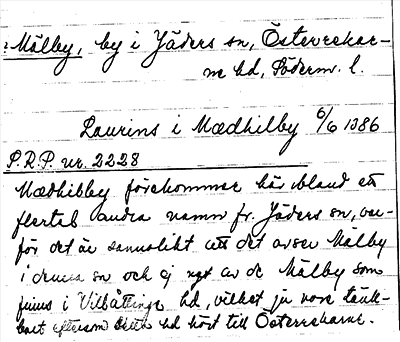 : Mälby, by i Jäders sn, Österrekar-
ne hd, Söderm. l.
Laurins i Mædhilby 6/6 1386
P.R.P. nr. 2228
Mædhilby förekommer här bland ett
flertal andra namn fr. Jäders sn, var-
för det är sannolikt att det avser Mälby
i denna sn och ej ngt av de Mälby som
finns i Vilbåttinge hd, vilket ju vore tänk-
bart eftersom hd hört till Österrekarne.